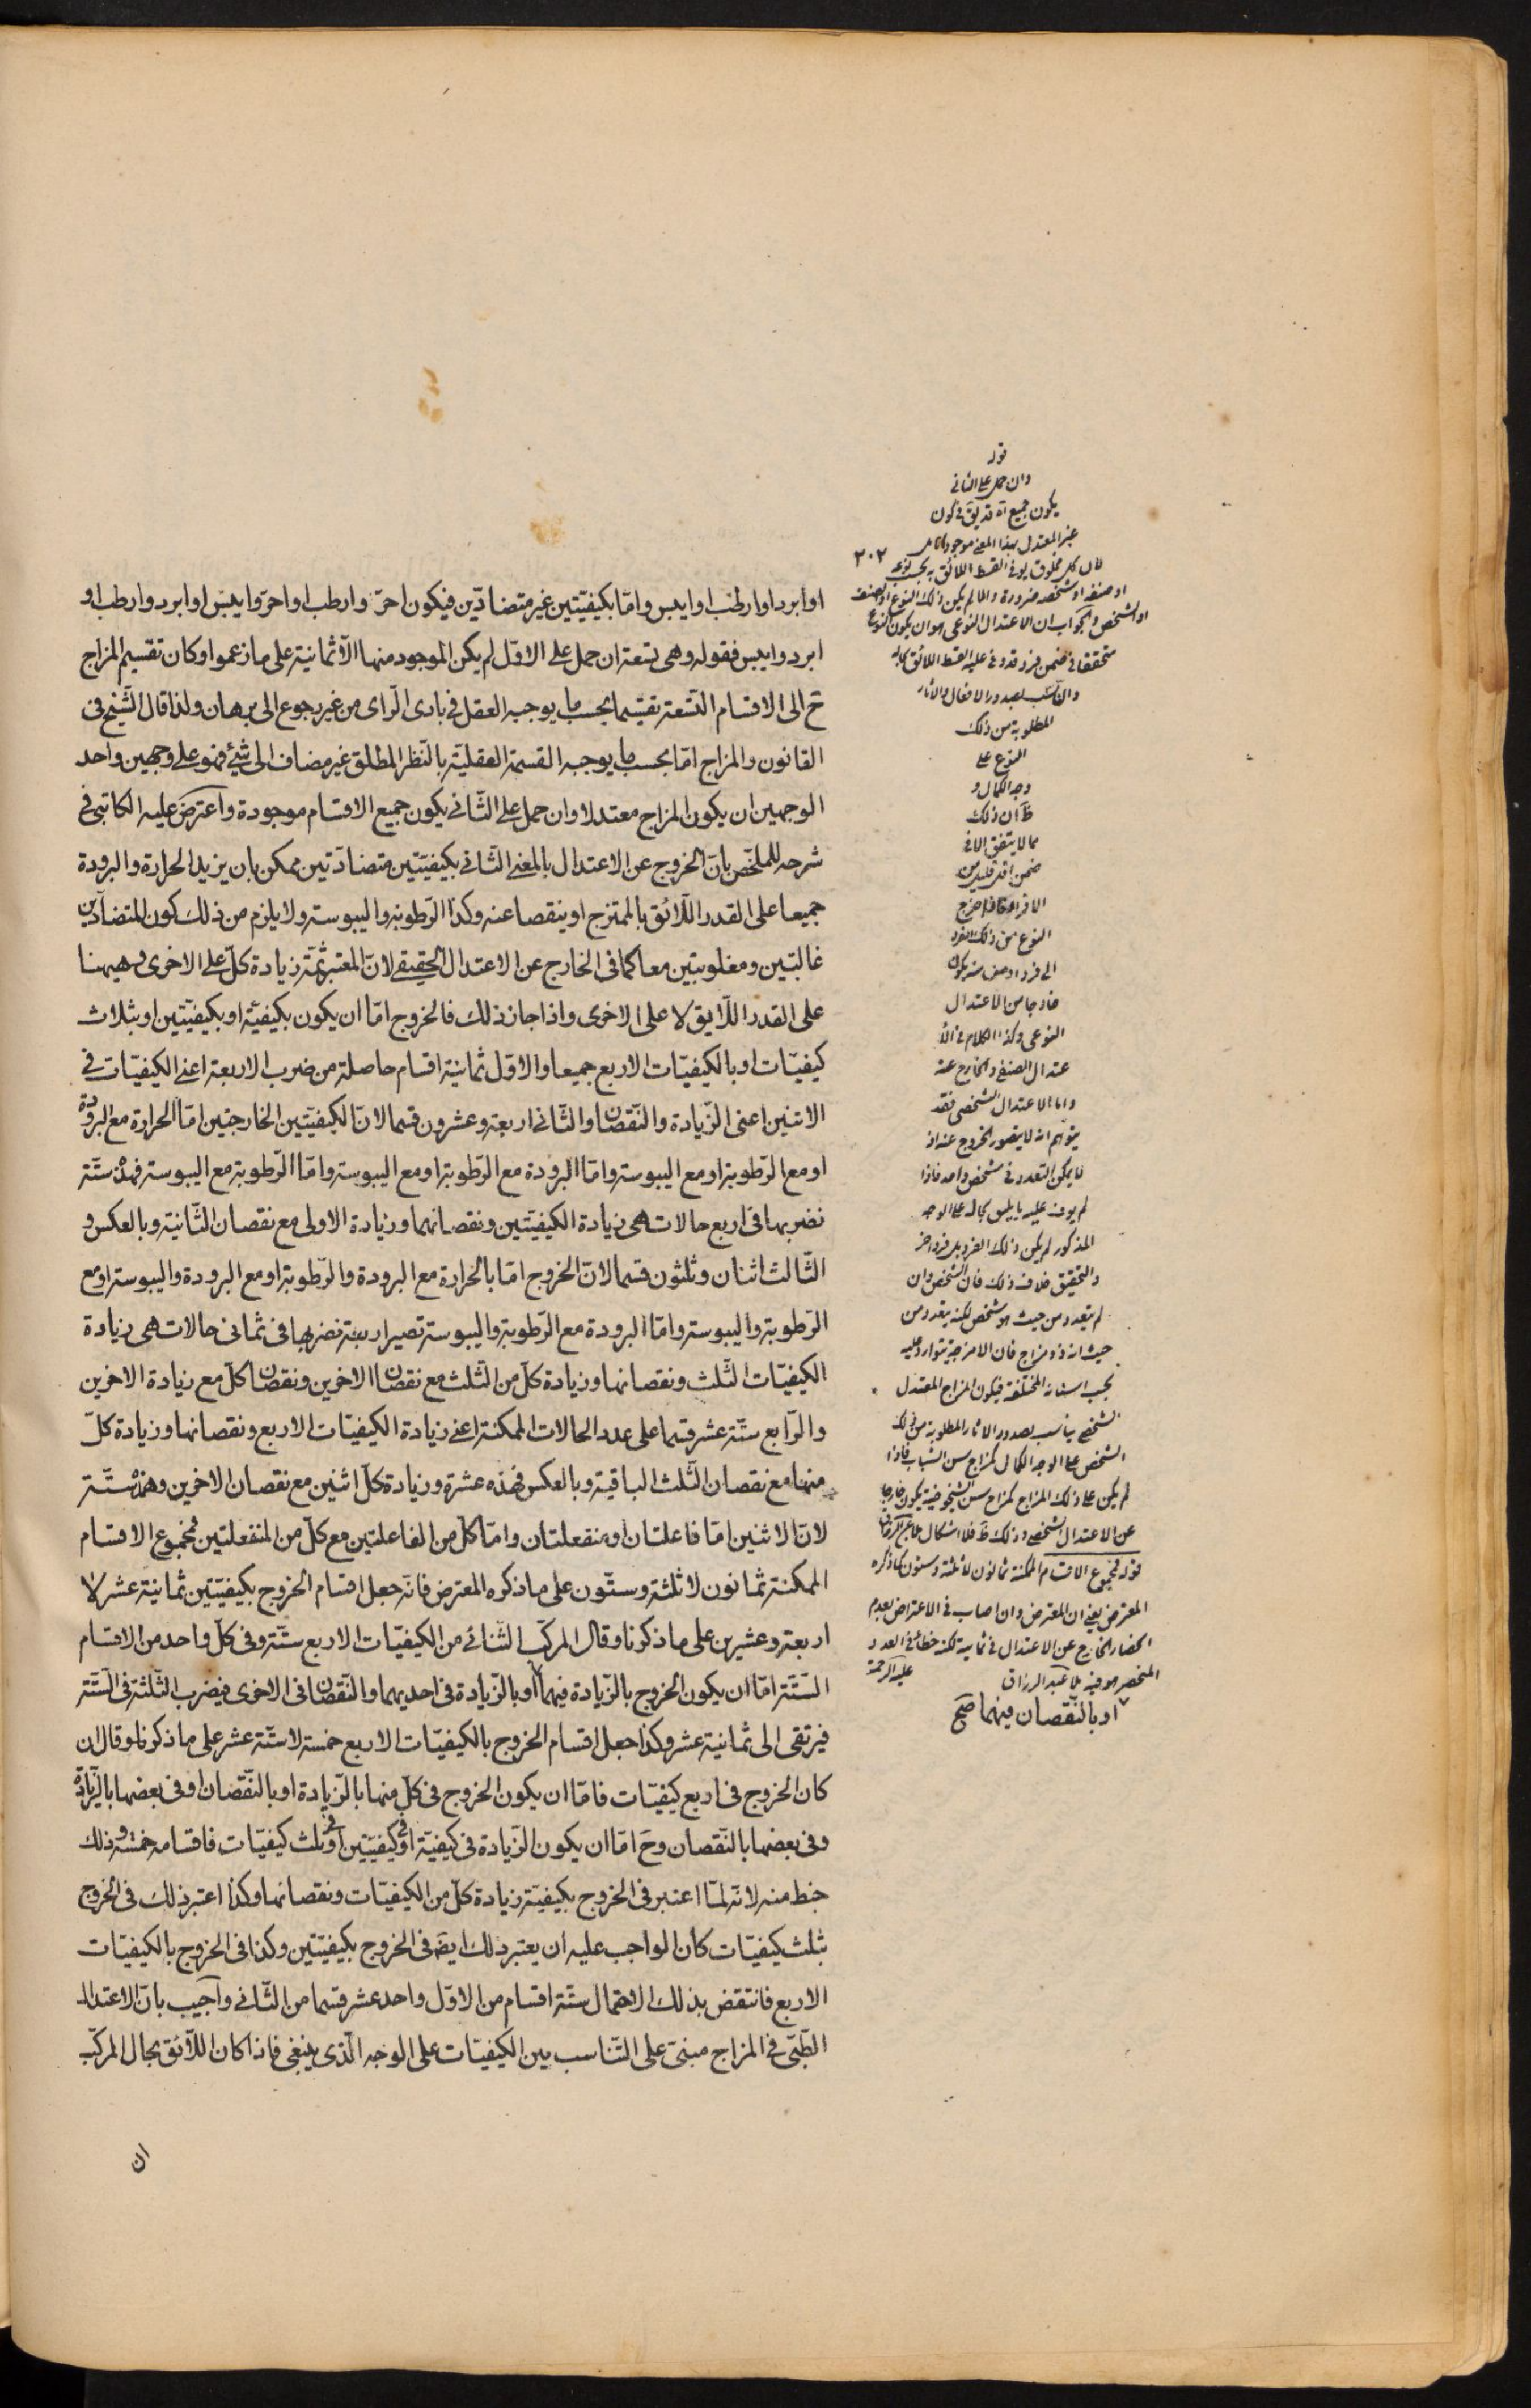 او ابرد او ارطب او ايبس وامّا بكيفيّتين غير متضادّين فيكون احرّ وارطب او احرّ وايبس او ابرد وارطب او
ابرد وايبس فقوله وهى تسعة ان حمل على الاوّل لم يكن الموجود منها الّا ثمانية على ما زعموا وكان تقسيم المزاج
ح الى الاقسام التّسعة تقسيما بحسب ما يوجبه العقل فى بادى الرّاى من غير رجوع الى برهان ولذا قال الشّيخ فى
القانون والمزاج امّا بحسب ما يوجبه القسمة العقليّة بالنّظر المطلق غير مضاف الى شئ فهو على وجهين واحد
الوجهين ان يكون المزاج معتدلا وان حمل على الثّانى يكون جميع الاقسام موجودة واعترض عليه الكاتبى فى
شرحه للملخّص بانّ الخروج عن الاعتدال بالمعنى الثّانى بكيفيّتين متضادّتين ممكن بان يزيد الحرارة والبرودة
جميعا على القدر اللّائق بالممتزج او ينقصا عنه وكذا الرّطوبة واليبوسة ولا يلزم من ذلك كون المتضادّين
غالبتين ومغلوبتين معا كما فى الخارج عن الاعتدال الحقيقى لانّ المعتبر ثمّة زيادة كلّ على الاخرى وههنا
على القدر اللّايق لا على الاخرى واذا جاز ذلك فالخروج امّا ان يكون بكيفيّة او بكيفيّتين او بثلاث
كيفيّات او بالكيفيّات الاربع جميعا والاوّل ثمانية اقسام حاصلة من ضرب الاربعة اعنى الكيفيّات فى
الاثنين اعنى الزّيادة والنّقصان والثّانى اربعة وعشرون قسما لانّ الكيفيّتين الخارجتين امّا الحرارة مع البرودة
او مع الرّطوبة او مع اليبوسة وامّا البرودة مع الرّطوبة او مع اليبوسة وامّا الرّطوبة مع اليبوسة فهذه ستّة
نضربها فى اربع حالات هى زيادة الكيفيّتين ونقصانهما وزيادة الاولى مع نقصان الثّانية وبالعكس و
الثّالث اثنان وثلثون قسما لانّ الخروج امّا بالحرارة مع البرودة والرّطوبة او مع البرودة واليبوسة او مع
الرّطوبة واليبوسة وامّا البرودة مع الرّطوبة واليبوسة تصير اربعة نضربها فى ثمانى حالات هى زيادة
الكيفيّات الثّلث ونقصانها وزيادة كلّ من الثّلث مع نقصان الاخرين ونقصان كلّ مع زيادة الاخرين
والرّابع ستّة عشر قسما على عدد الحالات الممكنة اعنى زيادة الكيفيّات الاربع ونقصانها وزيادة كلّ
منها مع نقصان الثّلث الباقية وبالعكس فهذه عشرة وزيادة كلّ اثنين مع نقصان الاخرين وهذه ستّة
لانّ الاثنين امّا فاعلتان او منفعلتان وامّا كلّ من الفاعلتين مع كلّ من المنفعلتين فمجموع الاقسام
الممكنة ثمانون لا ثلثة وستّون على ما ذكره المعترض فانّه جعل اقسام الخروج بكيفيّتين ثمانية عشر لا
اربعة وعشرين على ما ذكرنا وقال المركّب الثّنائى من الكيفيّات الاربع ستّة وفى كلّ واحد من الاقسام
السّتّة امّا ان يكون الخروج بالزّيادة فيهما او بالزّيادة فى احديهما والنّقصان فى الاخرى فيضرب الثّلثة فى السّتّة
فيرتقى الى ثمانية عشر وكذا جعل اقسام الخروج بالكيفيّات الاربع خمسة لا ستّة عشر على ما ذكرنا وقال ان
كان الخروج فى اربع كيفيّات فامّا ان يكون الخروج فى كلّ منها بالزّيادة او بالنّقصان او فى بعضها بالزّيادة
وفى بعضها بالنّقصان وح امّا ان يكون الزّيادة فى كيفيّة او فى كيفيّتين او فى ثلث كيفيّات فاقسامه خمسة وذلك
خبط منه لانّه لمّا اعتبر فى الخروج بكيفيّة زيادة كلّ من الكيفيّات ونقصانها وكذا اعتبر ذلك فى الخروج
بثلث كيفيّات كان الواجب عليه ان يعتبر ذلك ايضا فى الخروج بكيفيّتين وكذا فى الخروج بالكيفيّات
الاربع فانتقض بذلك الاحتمال ستّة اقسام من الاوّل واحد عشر قسما من الثّانى واجيب بانّ الاعتدال
الطّبّى فى المزاج مبنىّ على التّناسب بين الكيفيّات على الوجه الّذى ينبغى فاذا كان اللّائق بحال المركّب
ان
٢٠٢
قوله
وان حمل على الثانى
يكون جميع آه قد يق فى كون
غير المعتدل بهذا المعنى موجودا تامل
لان كل مخلوق يوفى القسط اللائق به بحسب نوعه
او صنفه او شخصه ضرورة والا لم يكن ذلك النوع او الصنف
او الشخص والجواب ان الاعتدال النوعى هو ان يكون النوع
متحققا فى ضمن فرد قد وفى عليه القسط اللائق بحاله
وانسب بصدور الافعال والاثار
المطلوبة من ذلك
النوع على
وجه الكمال و
ظ ان ذلك
مما لا يتفق الا فى
ضمن اقل قليل من
الافراد فاذا خرج
النوع من ذلك الفرد
الى فرد او صنف منه يكون
خارجا من الاعتدال
النوعى وكذا الكلام فى الا
عتدال الصنفى والخارج عنه
واما الاعتدال الشخصى فقد
يتوهم انه لا يتصور الخروج عنه اذ
لا يمكن التعدد فى شخص واحد فاذا
لم يوف عليه ما يليق بحاله على الوجه
المذكور لم يكن ذلك الفرد بل فرد اخر
والتحقيق خلاف ذلك فان الشخص وان
لم يتعدد من حيث هو شخص لكنه يتعدد من
حيث انه ذو مزاج فان الامزجة يتوارد عليه
بحسب اسنانه المختلفة فيكون المزاج المعتدل
الشخصى يناسب بصدور الاثار المطلوبة من ذلك
الشخص على الوجه الكمال كمزاج سن الشباب فاذا
لم يكن على ذلك المزاج كمزاج سن الشيخوخة يكون خارجا
عن الاعتدال الشخصى وذلك ظ فلا اشكال
قوله فمجموع الاقسام الممكنة ثمانون لا ثلثة وستون كما ذكره
المعترض يعنى ان المعترض وان اصاب فى الاعتراض بعدم
انحصار الخارج عن الاعتدال فى ثمانية لكنه خطائه فى العدد
المنحصر هو فيه ملا عبد الرزاق عليه الرحمة
او بالنّقصان فيهما صح